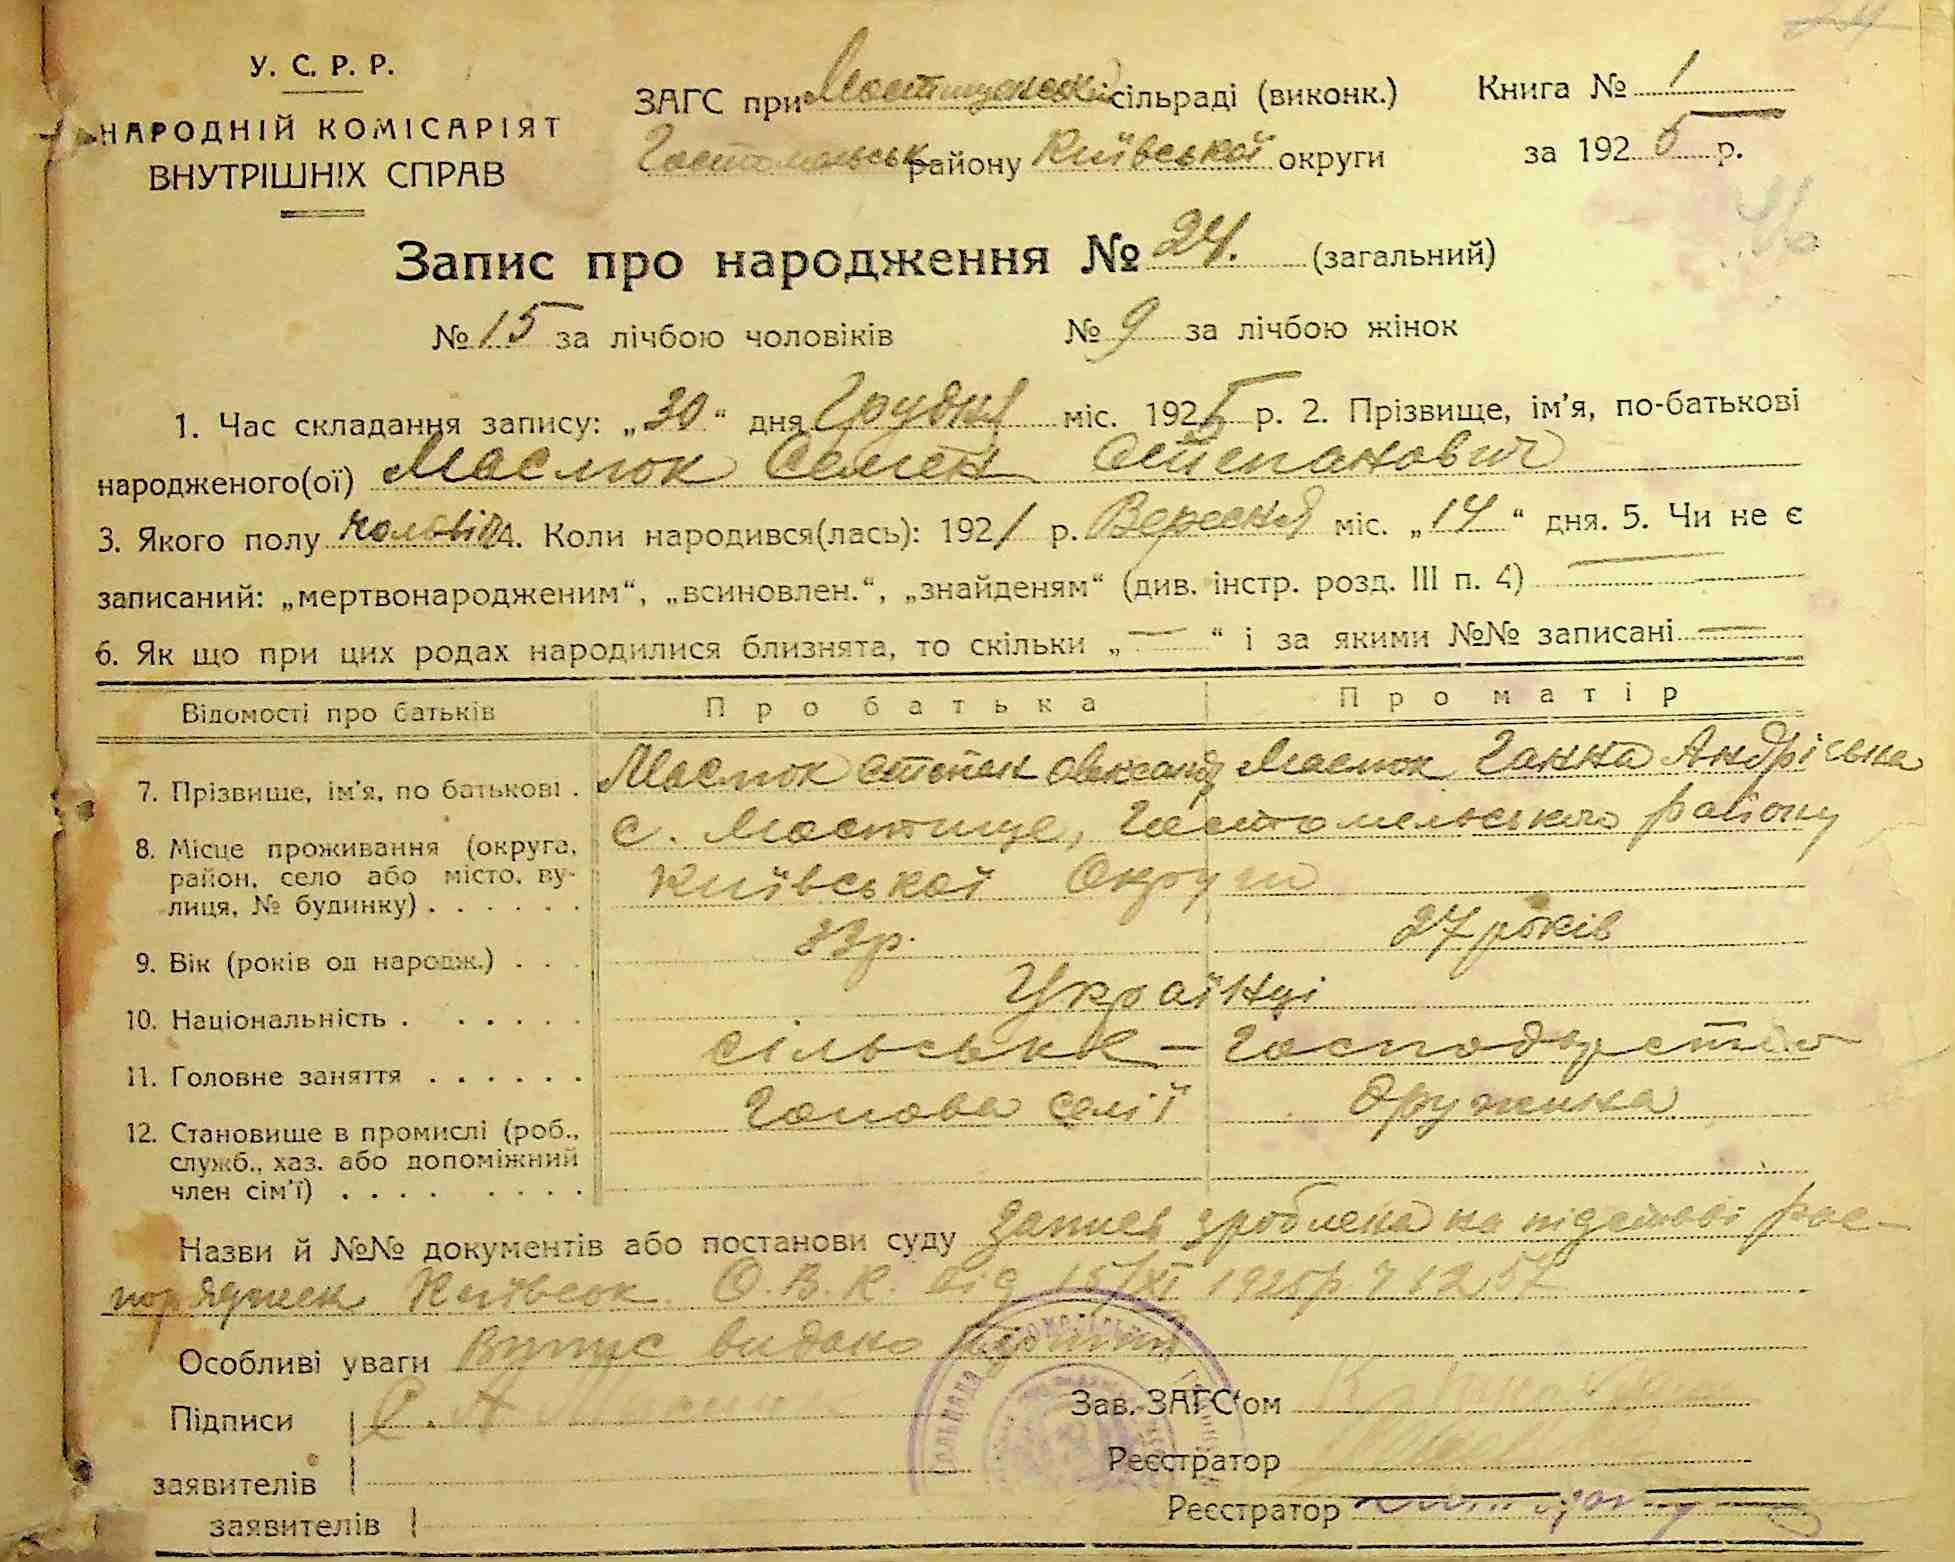 У. С. Р. Р.
НАРОДНІЙ КОМІСАРІЯТ
ВНУТРІШНІХ СПРАВ
ЗАГС при Мостищанській сільраді (виконк.)
Гостомельськ району Київської округи
Книга № 1
за 1925 р.
Запис про народження № 24. (загальний)
№ 15 за лічбою чоловіків № 9 за лічбою жінок
1. Час складання запису: „30“ дня Грудня міс. 1925 р. 2. Прізвище, ім'я, по-батькові
народженого(ої) Маслюк Семен Степанович
3. Якого полу чоловіч 4. Коли народився(лась): 1921 р. Вересня міс. „14“ дня. 5. Чи не є
записаний: „мертвонародженим“, „всиновлен.“, „знайденям“ (див. інстр. розд. III п. 4) —
6. Як що при цих родах народилися близнята, то скільки „—“ і за якими №№ записані —
Відомості про батьків Про батька Про матір
7. Прізвище, ім'я, по батькові . Маслюк Степан Олександ Маслюк Ганна Андріівна
8. Місце проживання (округа, район, село або місто, вулиця, № будинку) . . . . . . с. Мостище, Гостомельського району
Київської Округи
9. Вік (років од народж.) . . . 33 р. 27 років
10. Національність . . . . . . Українці
11. Головне заняття . . . . . . сільськє - господарство
12. Становище в промислі (роб., служб., хаз. або допоміжний член сім'ї) . . . . . . . . Голова семії дружина
Назви й №№ документів або постанови суду Запис зроблена на підставі рос-
поряджен Київськ. О.В.К. від 15/XI 1925р ч 1257
Особливі уваги Випис видано
Підписи Зав. ЗАГС'ом
заявителів Реєстратор
заявителів Реєстратор